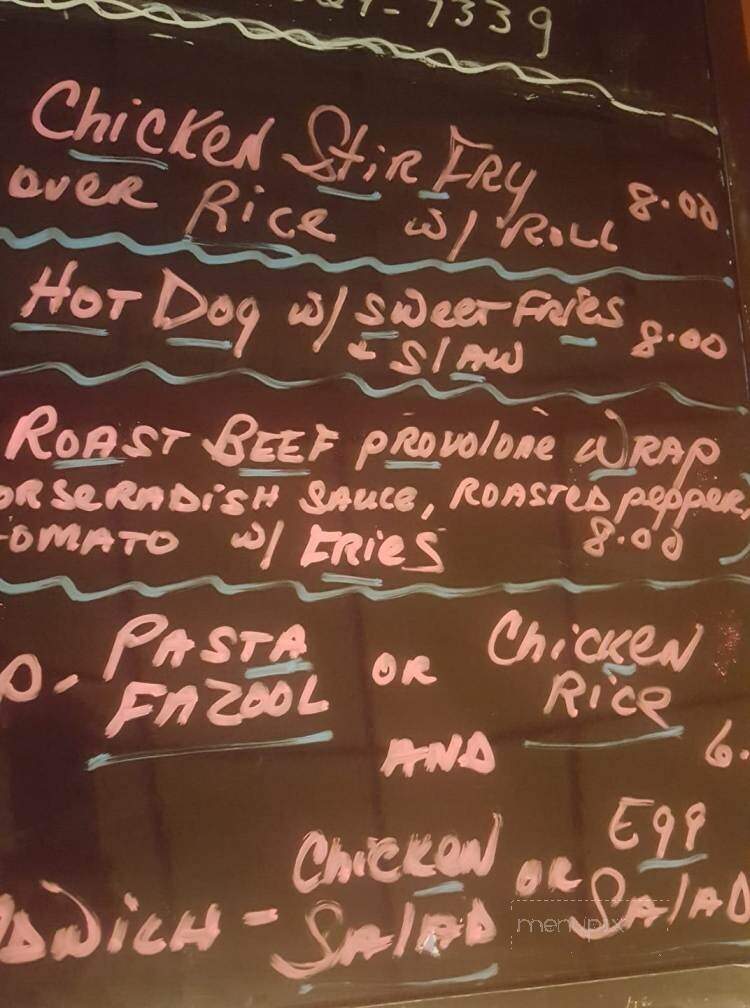 7339
Chicken Stir Fry
over Rice w/ Roll 8.00
Hot Dog w/ Sweet Fries
+ Slaw 8.00
Roast Beef provolone Wrap
orseradish sauce, roasted pepper,
omato w/ Fries 8.00
Pasta Fazool or Chicken Rice
and 6.
dwich - Chicken Salad or Egg Salad
menupix